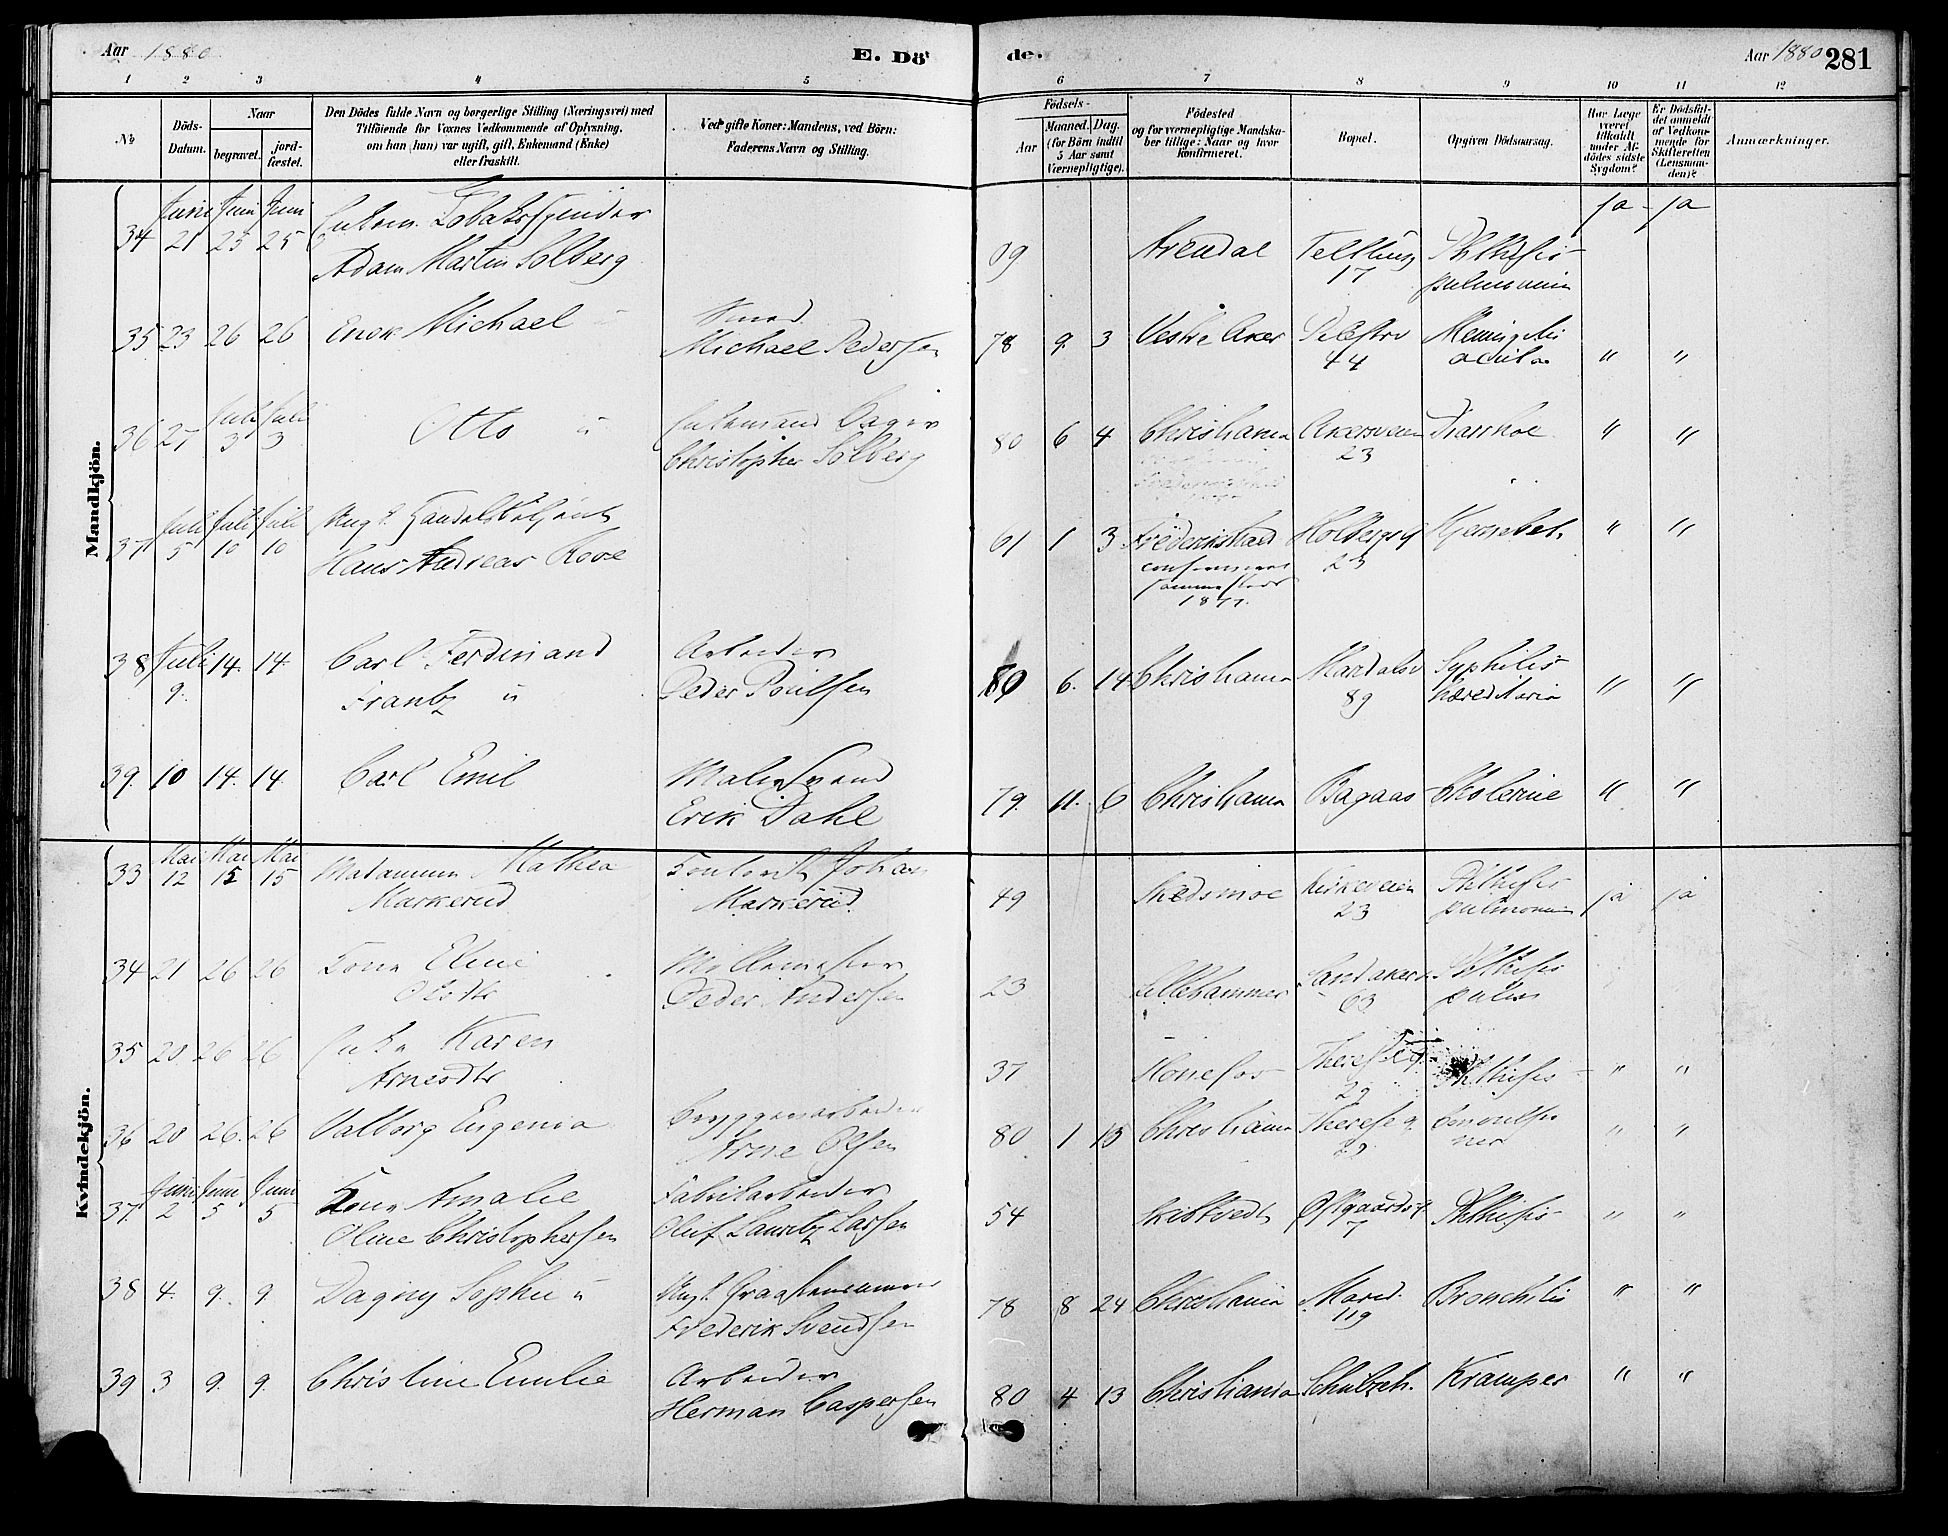 Aar 1880
E. Dö-
de.
Aar 1880 281
1 2 3 4 5 6 7 8 9 10 11 12
No
Döds-Datum.
Naar
begravet.
jord-fæstet.
Den Dödes fulde Navn og borgerlige Stilling (Næringsvei) med
Tilföiende for Voxnes Vedkommende af Oplysning,
om han (hun) var ugift, gift, Enkemand (Enke)
eller fraskilt.
Ved gifte Koner: Mandens, ved Börn:
Faderens Navn og Stilling.
Födsels-
Aar
Maaned. Dag.
(for Börn indtil
5 Aar samt
Værnepligtige).
Födested
og for værnepligtige Mandska-
ber tillige: Naar og hvor
konfirmeret.
Bopæl.
Opgiven Dödsaarsag.
Har Læge
været
tilkaldt
under Af-
dödes sidste
Sygdom?
Er Dödsfal-
det anmeldt
af Vedkom-
mende for
Skifteretten
(Lensman-
den)?
Anmærkninger.
Mandkjön.
Juni Juni Juni
34 21 25 25
Adam Martin Solberg
09 Arendal 17 Phthisis ja ja
35 23 26 26 Erick Michael
Smed
Michael Pedersen
78 9 3 Vestre Aker Pilestr 44 " "
Juli Juli
36 27 3 3 Otto u
Christopher Solberg
80 6 4 Christiania Akersveien 23 Diarrhoe " "
Juli Juli Juli
37 5 10 10 Ungk. Handelsbetjent
Hans Andreas
61 1 3 Frederikstad Holbergsg 23 " "
1877.
38 Juli 9. 14. 14. Carl Ferdinand
Frantz u
Arbeider
Peder Poulsen
80 6. 14 Christiania 89 Syphilis
hæreditaria " "
39. 10 14. 14. Carl Emil
Malersvend
Erik Dahl
79. 11. 6 Christiania Bagaas Cholerine " "
Kvindekjön.
Mai Mai Mai
33 12 15 15 Madammen Mathea
Markerud
Johan
Markerud
49 Skedsmoe Kirkeveien 23 Phthisis
pulmonum ja ja
34 21 26 26 Kone Eline
Olsdtr
Møllemester
Peder Andersen
23 Lillehammer Sandakerv 63 Phthisis
pulm
35 20 26 26 Enke Karen
Arnesdtr
37 Hønefos Theresesg. 29 Phthisis " "
36 20 26. 26 Valborg Eugenia
Bryggeriarbeider
Arne Olsen
80 1 15 Christiania Theresesg. " "
Juni Juni Juni
37. 2 5 5 Kone Amalie
Oline Christophersen
Fabrikarbeider
Oluf Lauritz Larsen
54 7 Phthisis " "
38 4. 9. 9 Dagny Sophie u
Frederik Svendsen
78 8 24 Christiania Mared. 119 Bronchitis " "
39 3 9. 9. Christine Emilie
Arbeider
Herman Caspersen
80 4 13 Christiania Kramper " "